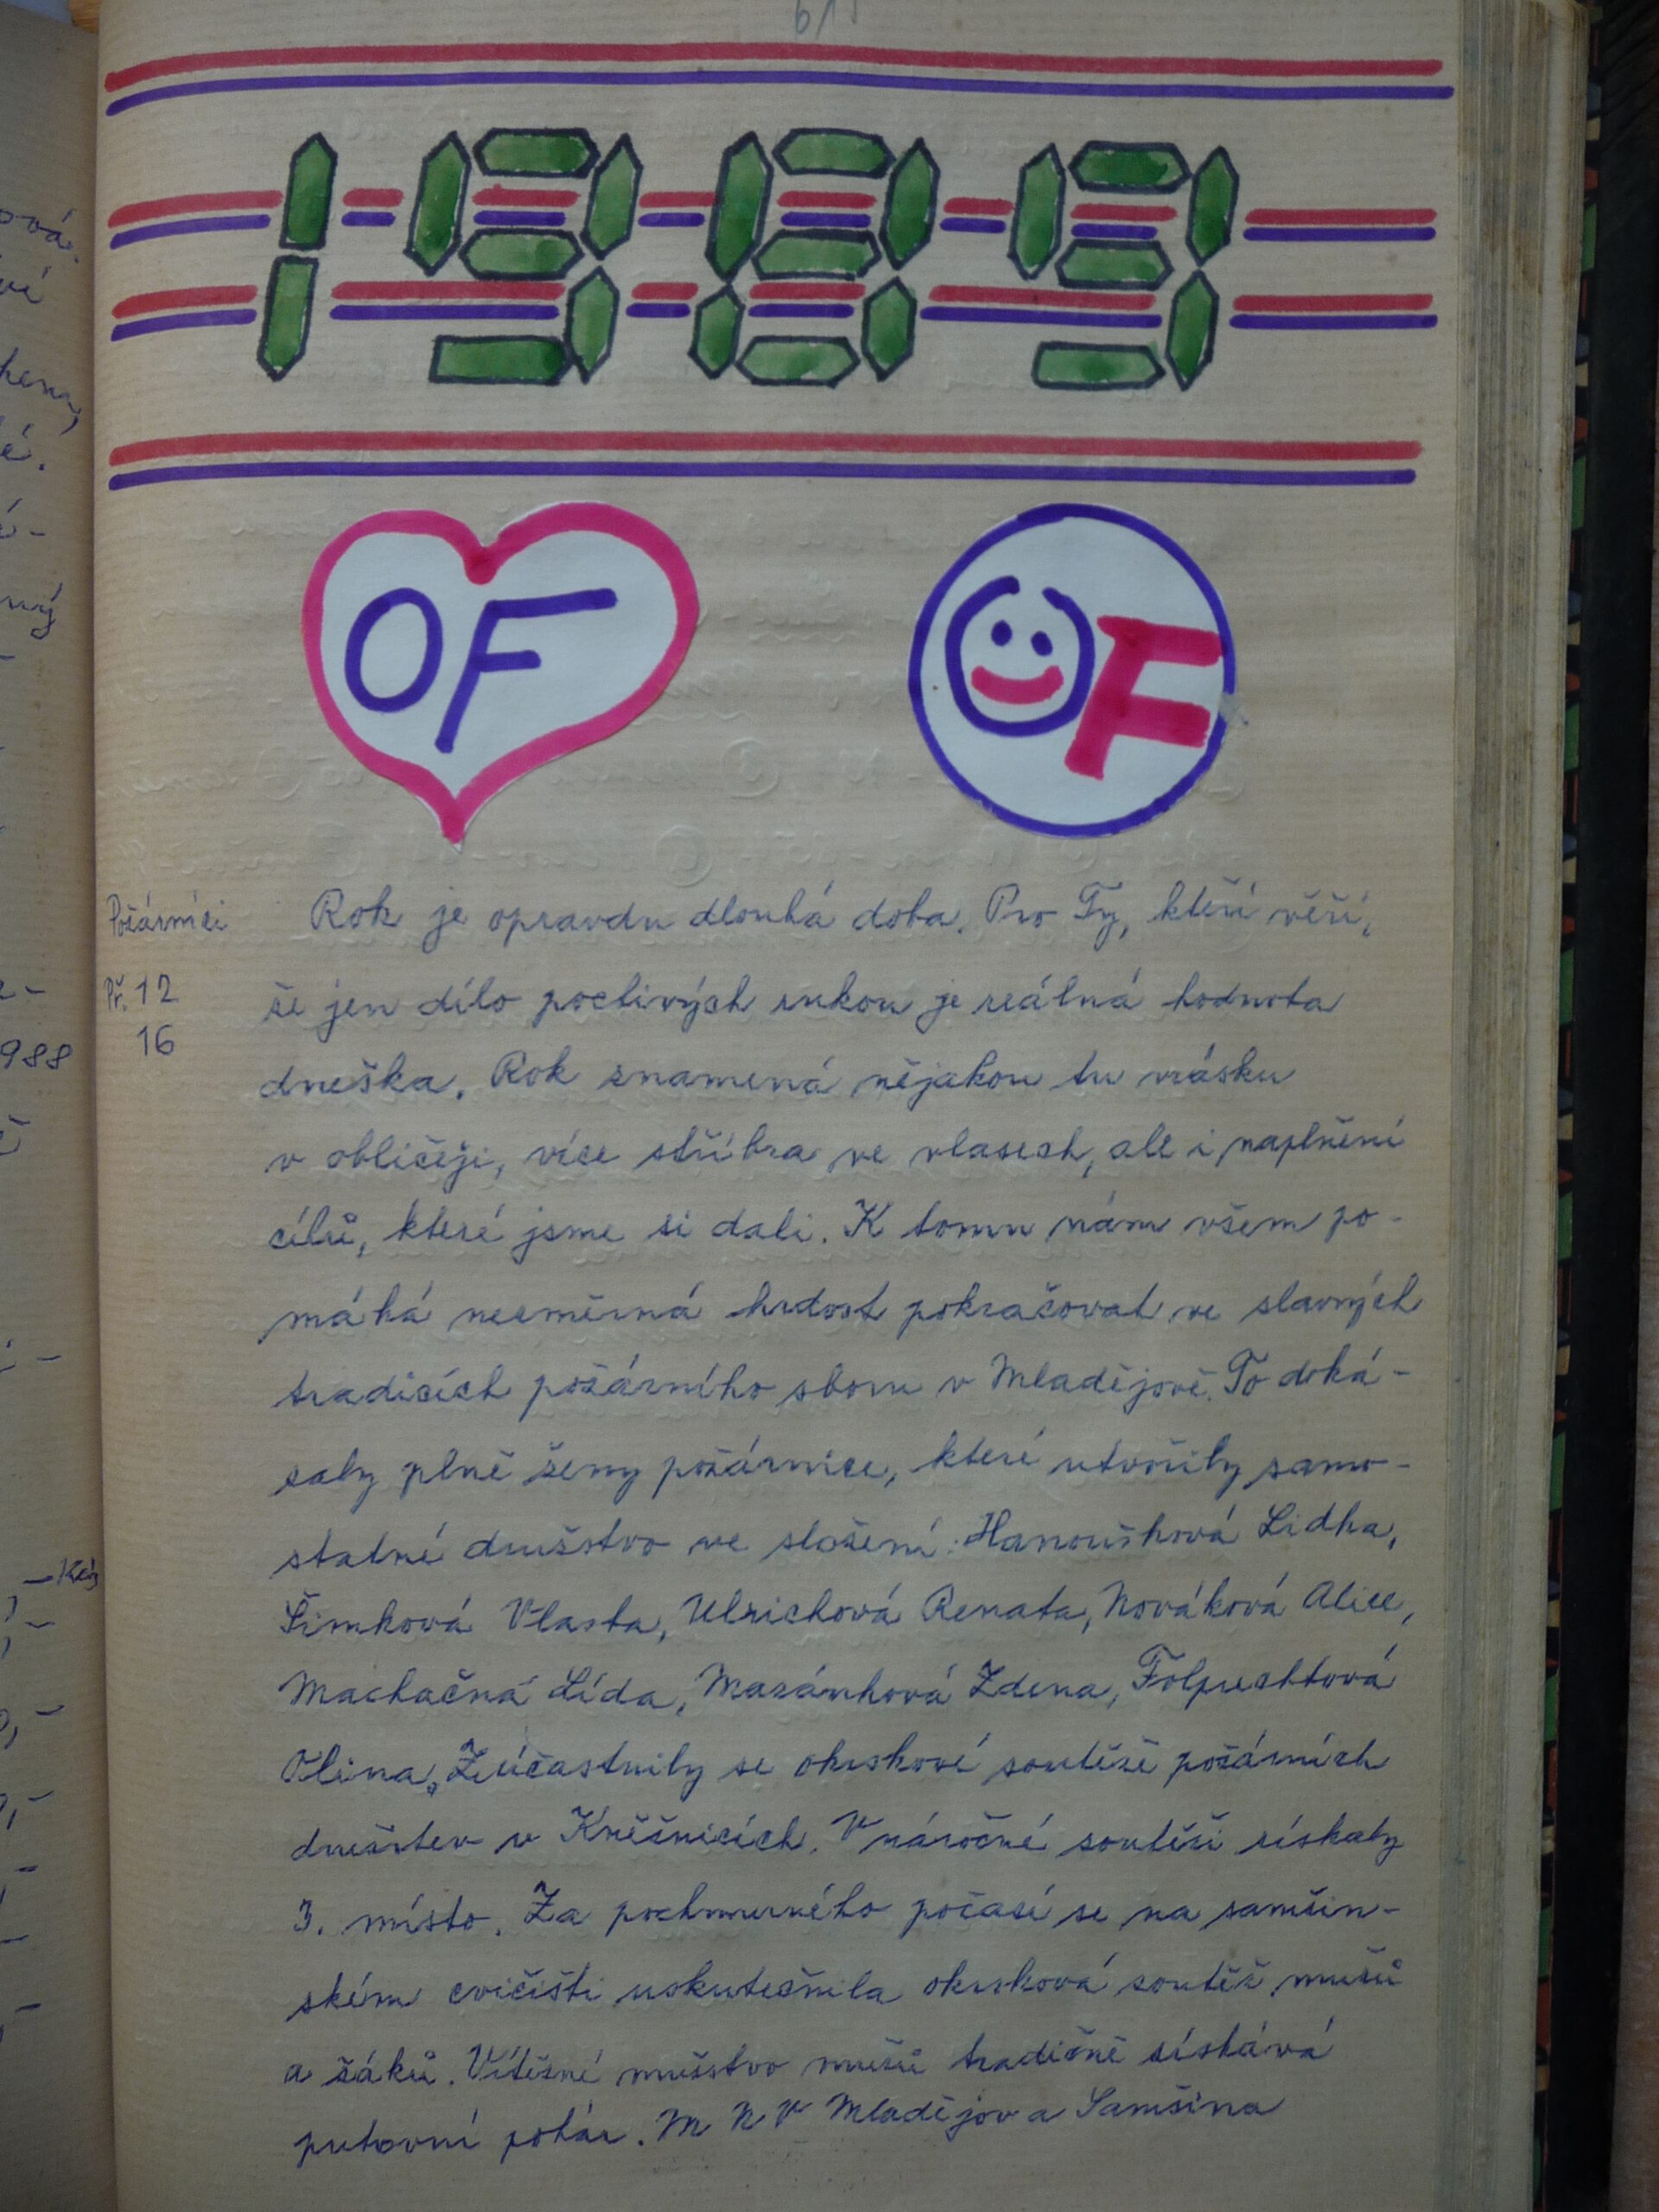 1989
OF
OF
Požárníci
Př. 12
16
Rok je opravdu dlouhá doba. Pro Ty, kteří věří,
že jen dílo poctivých rukou je reálná hodnota
dneška. Rok znamená nějakou tu vrásku
v obličeji, více stříbra ve vlasech, ale i naplnění
cílů, které jsme si dali. K tomu nám všem po-
máhá nesmírná hrdost pokračovat ve slavných
tradicích požárního sboru v Mladějově. To doká-
zaly plně ženy požárnice, které utvořily samo-
statné družstvo ve složení: Hanoušková Lidka,
Šimková Vlasta, Ulrichová Renata, Nováková Alice,
Machačná Lída, Mazánková Zdena, Folprechtová
Vlina. Zúčastnily se okrskové soutěže požárních
družstev v Kněžnicích. V náročné soutěži získaly
3. místo. Za pochmurného počasí se na samšin-
ském cvičišti uskutečnila okrsková soutěž mužů
a žáků. Vítězné mužstvo mužů tradičně získává
putovní pohár. M N V Mladějov a Samšina
988
Kčs